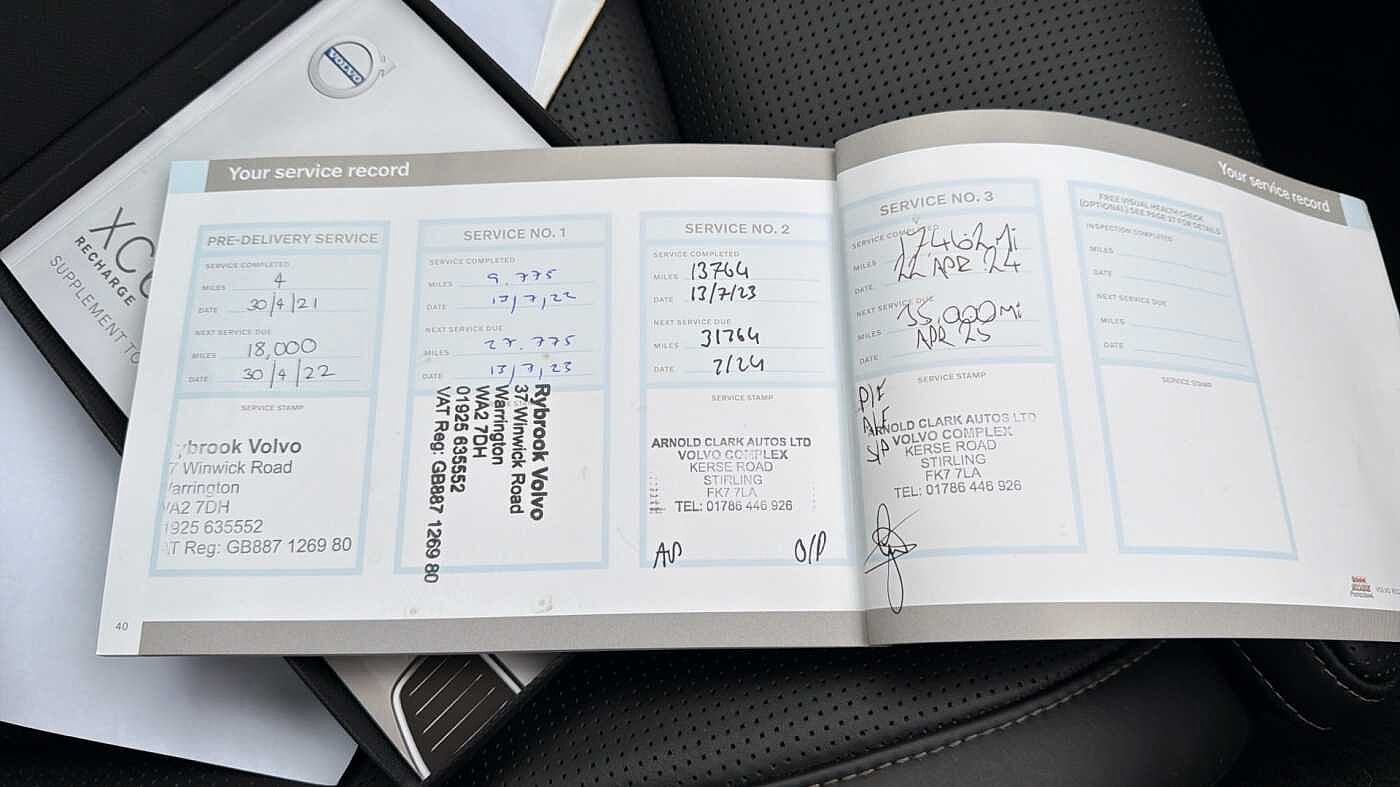 VOLVO
XC6
RECHARGE
SUPPLEMENT TO
Your service record
PRE-DELIVERY SERVICE
SERVICE COMPLETED
MILES 4
DATE 30/4/21
NEXT SERVICE DUE
MILES 18,000
DATE 30/4/22
SERVICE STAMP
ybrook Volvo
7 Winwick Road
arrington
WA2 7DH
1925 635552
AT Reg: GB887 1269 80
SERVICE NO. 1
SERVICE COMPLETED
MILES 9.775
DATE 13/7/22
NEXT SERVICE DUE
MILES 27.775
DATE 13/7/23
Rybrook Volvo
37 Winwick Road
Warrington
WA2 7DH
01925 635552
VAT Reg: GB887 1269 80
SERVICE NO. 2
SERVICE COMPLETED
MILES 13764
DATE 13/7/23
NEXT SERVICE DUE
MILES 31764
DATE 7/24
SERVICE STAMP
ARNOLD CLARK AUTOS LTD
VOLVO COMPLEX
KERSE ROAD
STIRLING
FK7 7LA
TEL: 01786 446 926
O/P
40
Your service record
SERVICE NO. 3
SERVICE COMPLETED
MILES 17462Mi
DATE 22 APR 24
NEXT SERVICE DUE
MILES 35,000Mi
DATE APR 25
SERVICE STAMP
P/F
A/F
S/P
ARNOLD CLARK AUTOS LTD
VOLVO COMPLEX
KERSE ROAD
STIRLING
FK7 7LA
TEL: 01786 446 926
FREE VISUAL HEALTH CHECK
(OPTIONAL) SEE PAGE 37 FOR DETAILS
INSPECTION COMPLETED
MILES
DATE
NEXT SERVICE DUE
MILES
DATE
SERVICE STAMP